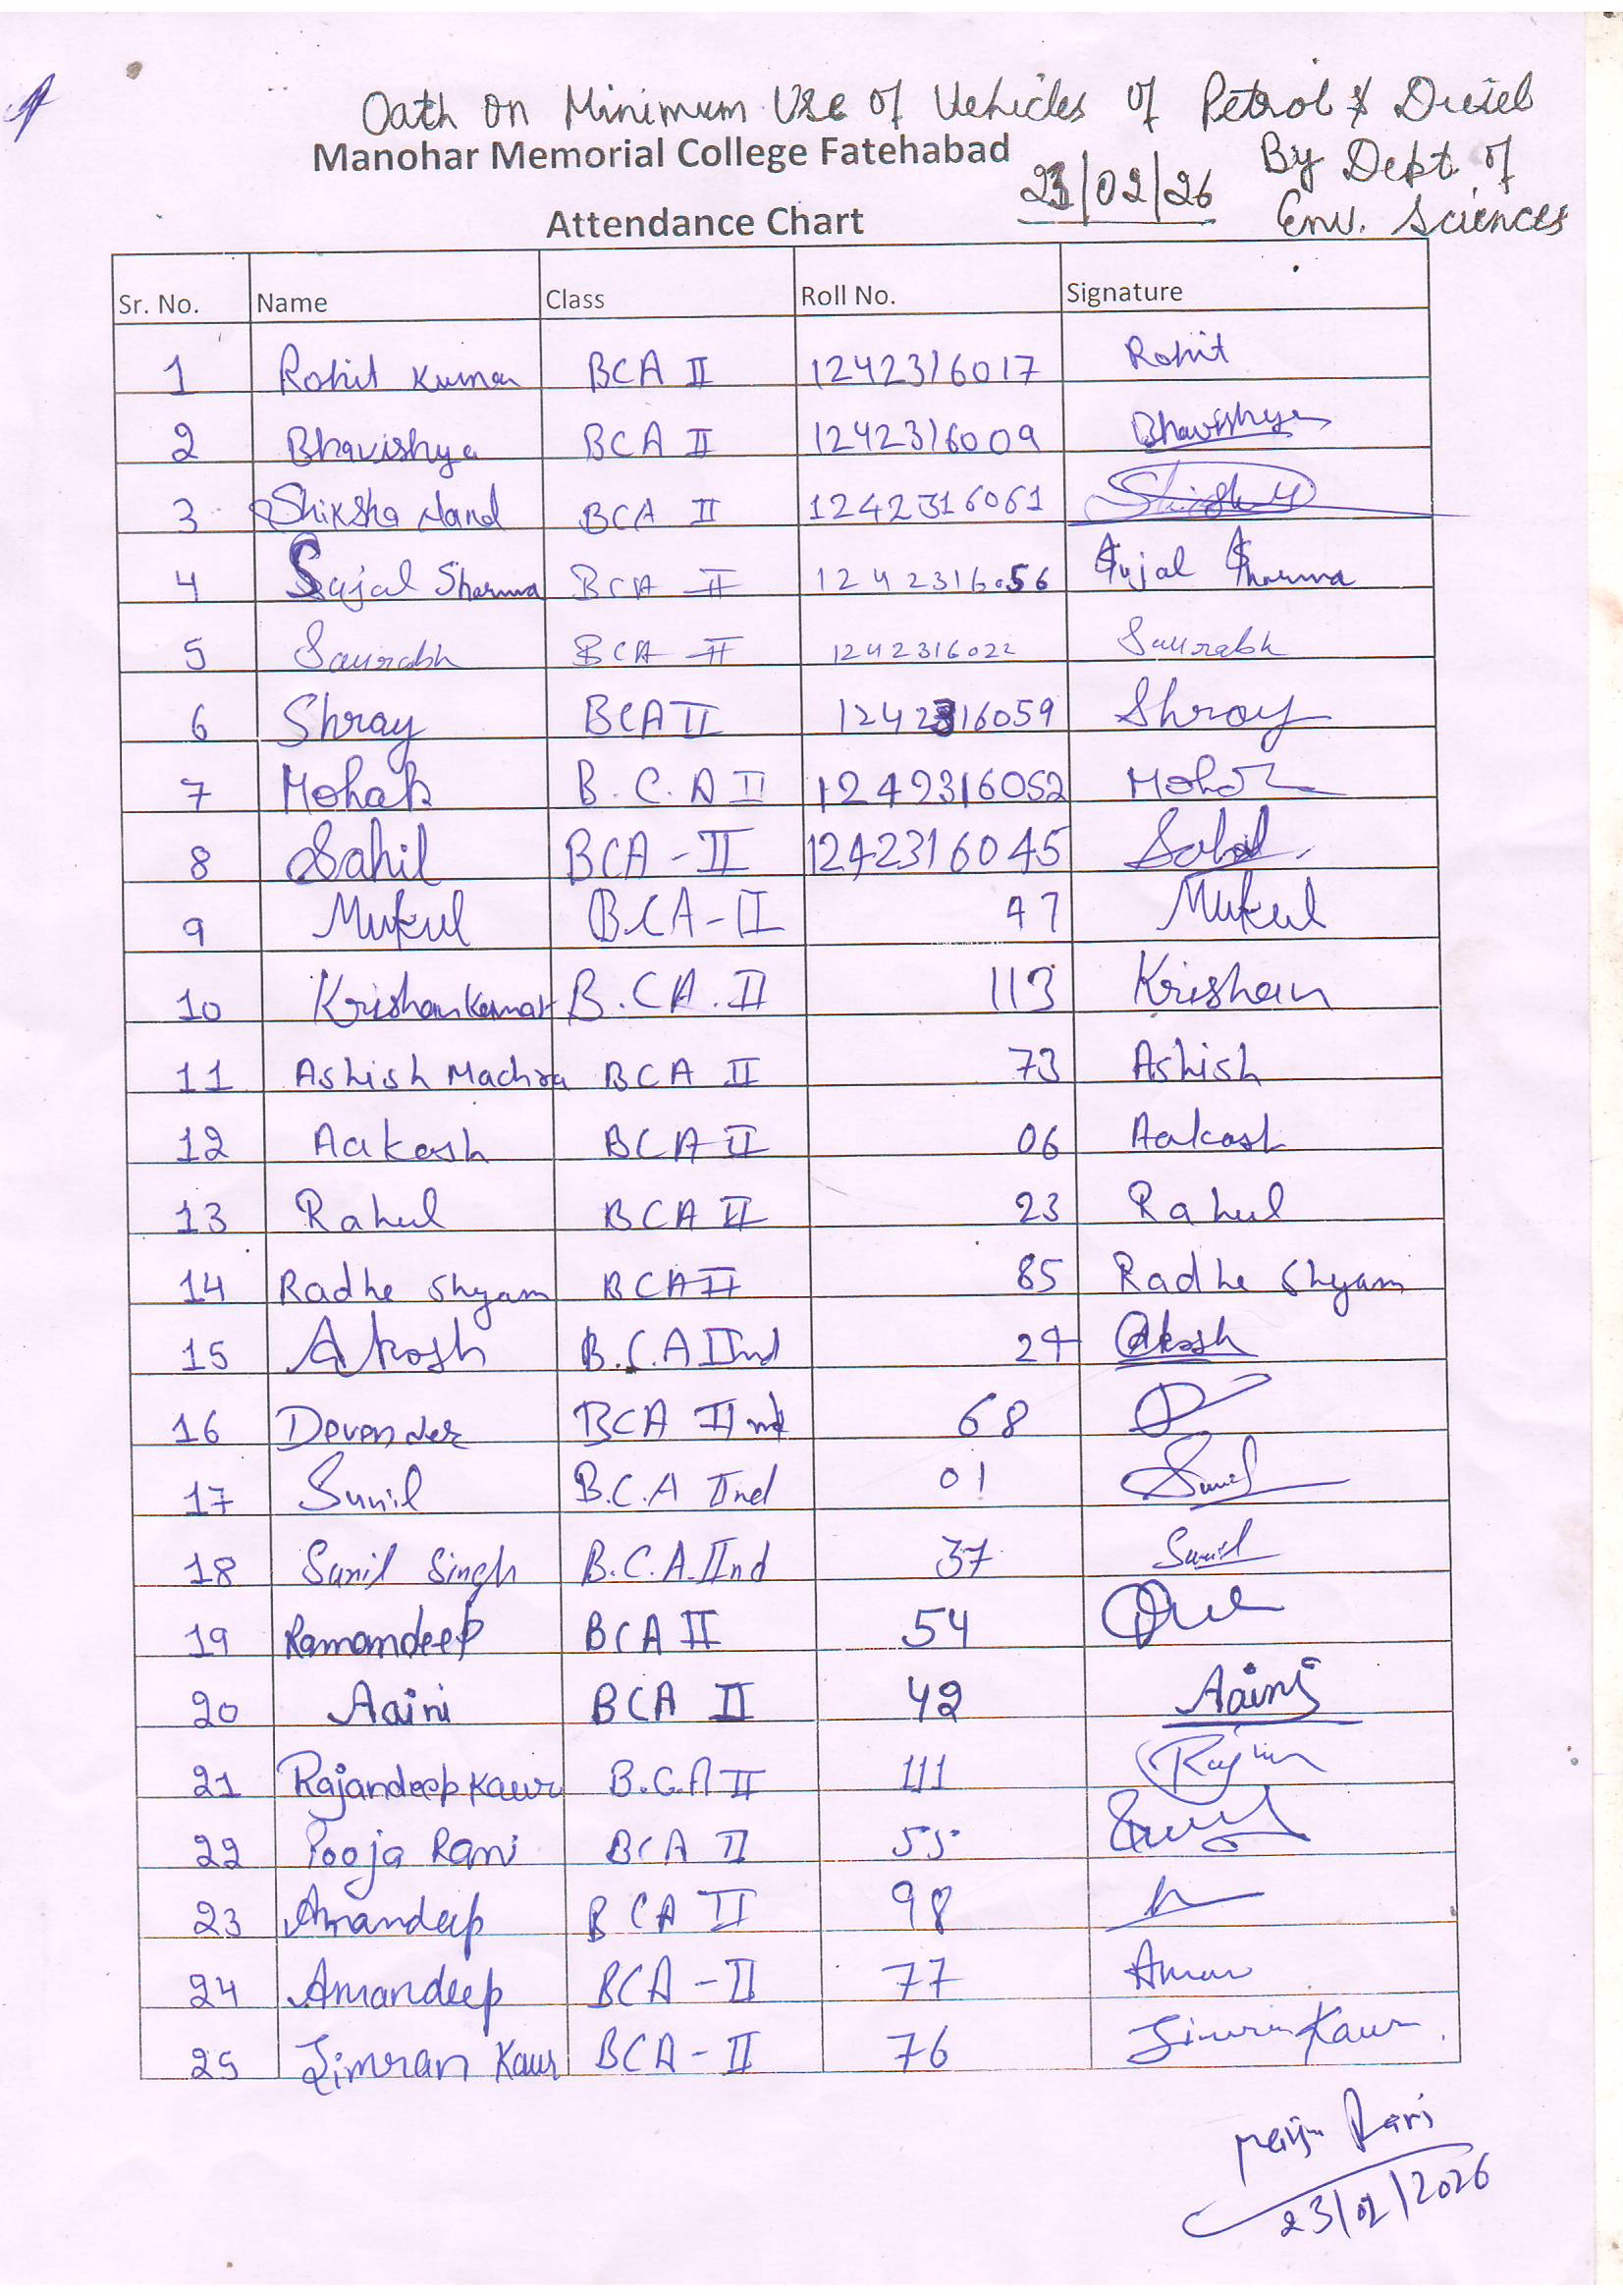 Oath on Minimum Use of Vehicles of Petrol & Diesel
Manohar Memorial College Fatehabad
23/02/26
By Dept of
Env. Sciences
Attendance Chart
Sr. No. Name Class Roll No. Signature
1 Rohit Kumar BCA II 1242316017 Rohit
2 Bhavishya BCA II 1242316009 Bhavishya
3 Shiksha Nand BCA II 1242316061
4 Sujal Sharma BCA II 1242316056 Sujal Sharma
5 Saurabh BCA II 1242316022 Saurabh
6 Shray BCA II 1242316059 Shray
7 Mohak B.C.A II 1242316052 Mohak
8 Sahil BCA - II 1242316045 Sahil
9 Mukul BCA - II 47 Mukul
10 Krishan Kumar B.CA.II 113 Krishan
11 Ashish Machra BCA II 73 Ashish
12 Aakash BCA II 06 Aakash
13 Rahul BCA II 23 Rahul
14 Radhe Shyam BCA II 85 Radhe Shyam
15 Akash B.C.A IInd 24 Akash
16 Devender BCA IInd 68
17 Sunil B.C.A IInd 01 Sunil
18 Sunil Singh B.C.A. IInd 37 Sunil
19 Ramandeep BCA II 54
20 Aaini BCA II 42 Aaini
21 Rajandeep Kaur B.C.A II 111
22 Pooja Rani BCA II 55
23 Amandeep BCA II 98
24 Amandeep BCA - II 77 Aman
25 Simran Kaur BCA - II 76 Simran Kaur
Rani
23/02/2026